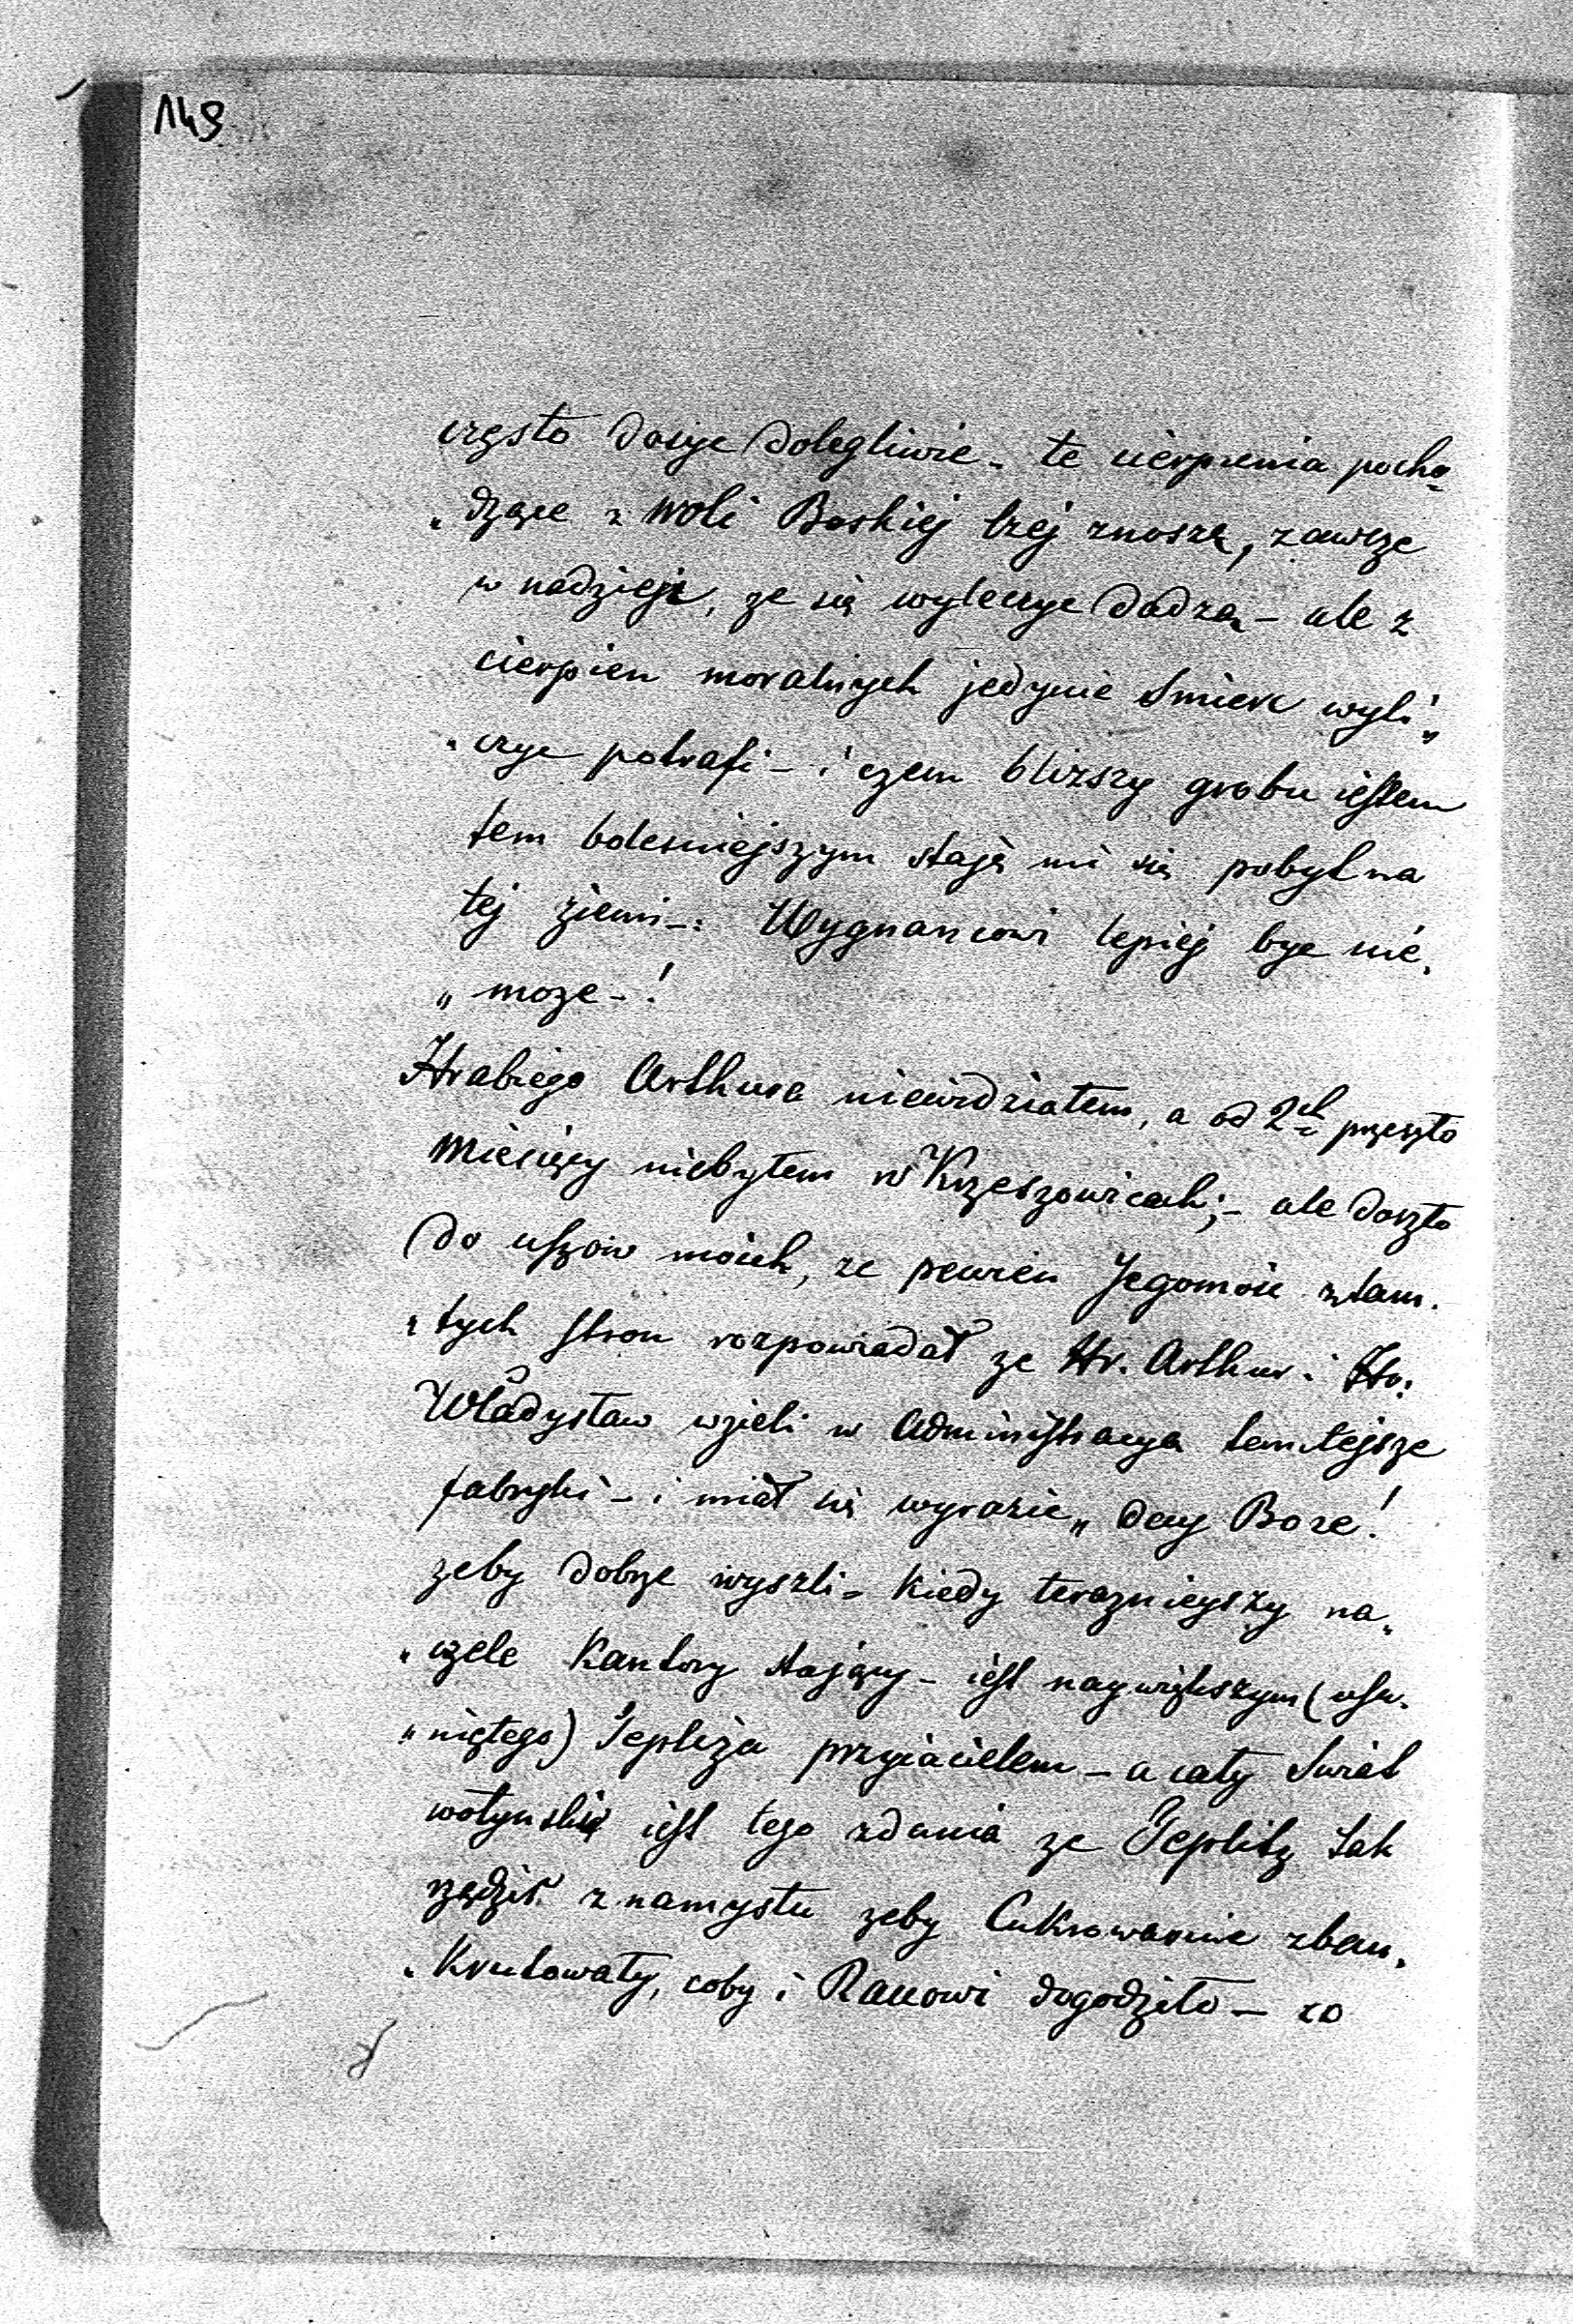 149
często dosyc dolegliwie - te cierpienia pocho=
„dzące z woli Boskiej lzej znoszę, zawsze
w nadzieje, ze się wyleczyc dadzą - ale z
cierpien moralnych jedynie smierc wyli„
„czyc potrafi - i czem blizszy grobu iestem
tem bolesniejszym staje mi się pobyt na
tej ziemi -: Wygnancowi lepiej byc nie„
„moze -!
Hrabiego Arthura niewidziałem, a od 2ch przeszło
Miesięcy niebyłem w Krzeszowicach; - ale doszło
do uszow moich, ze pewien Jegomosc z tam„
„tych stron rozpowiadał ze Hr. Arthur i Hr.
Władysław wzieli w Administracya temtejsze
fabryki - i miał się wyrazic „day Boze!
zeby dobrze wyszli = Kiedy terazniejszy na„
„czele Kantory stający - iest naywiększym (usu„
„niętego) Teplitza przyiacielem - a cały swiat
wołynski iest tego zdania ze Teplitz tak
rządził z namysłu zeby Cukrowarnie zban„
„Krutowały, coby i Rauowi dogodziło - co